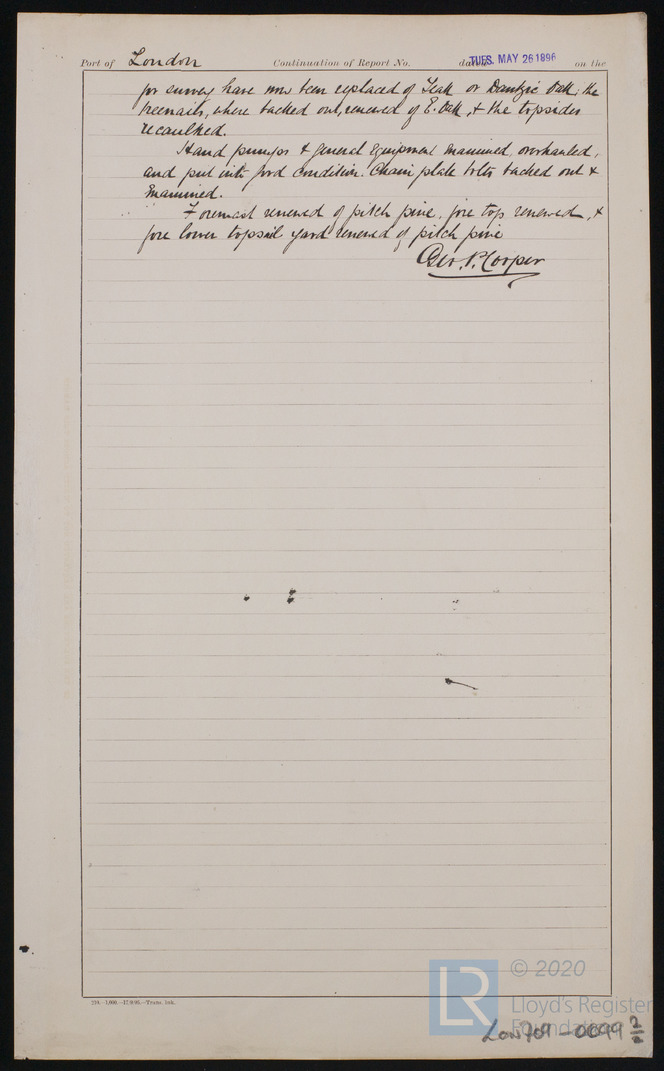 Port of London Continuation of Report No. dated TUES. MAY 26 1896 on the
for survey have now been replaced of Teak or Dantzic Oak, the
treenails, where backed out, renewed of E. Oak, & the topsides
recaulked.
Hand pumps & general Equipment examined, overhauled,
and put into good condition. Chain plate bolts backed out &
examined.
Foremast renewed of pitch pine, fore top renewed, &
fore lower topsail yard renewed of pitch pine
Geo. P. Cooper
© 2020
LR
Lloyd's Register
Foundation
Lon709-0099